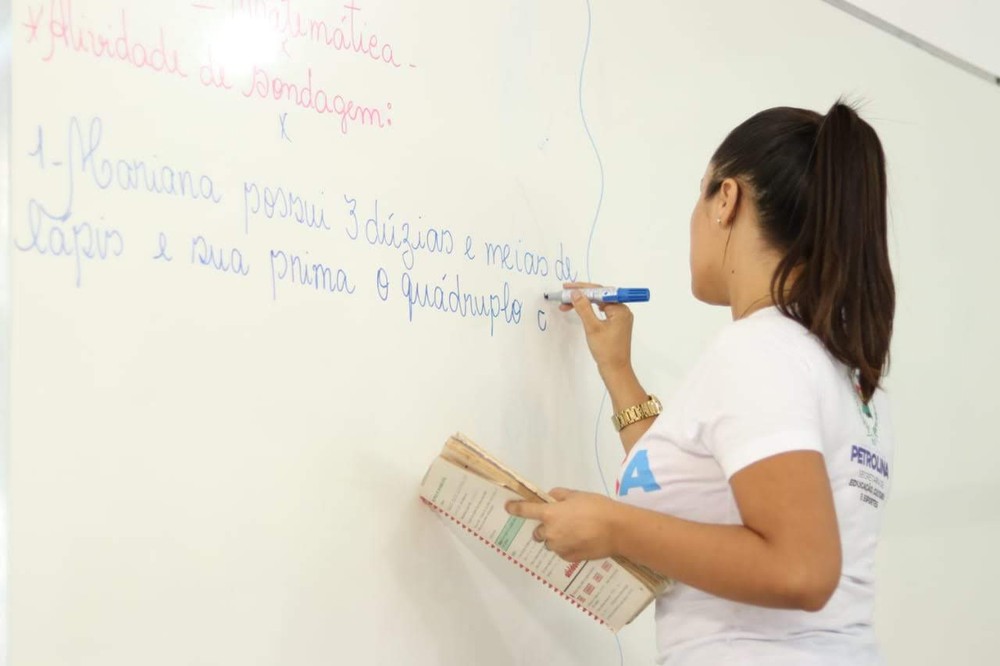 - Matemática -
* Atividade de Sondagem:
1-Mariana possui 3 dúzias e meias de
lápis e sua prima o quádruplo
A
PETROLINA
SECRETARIA DE
EDUCAÇÃO, CULTURA
E ESPORTES